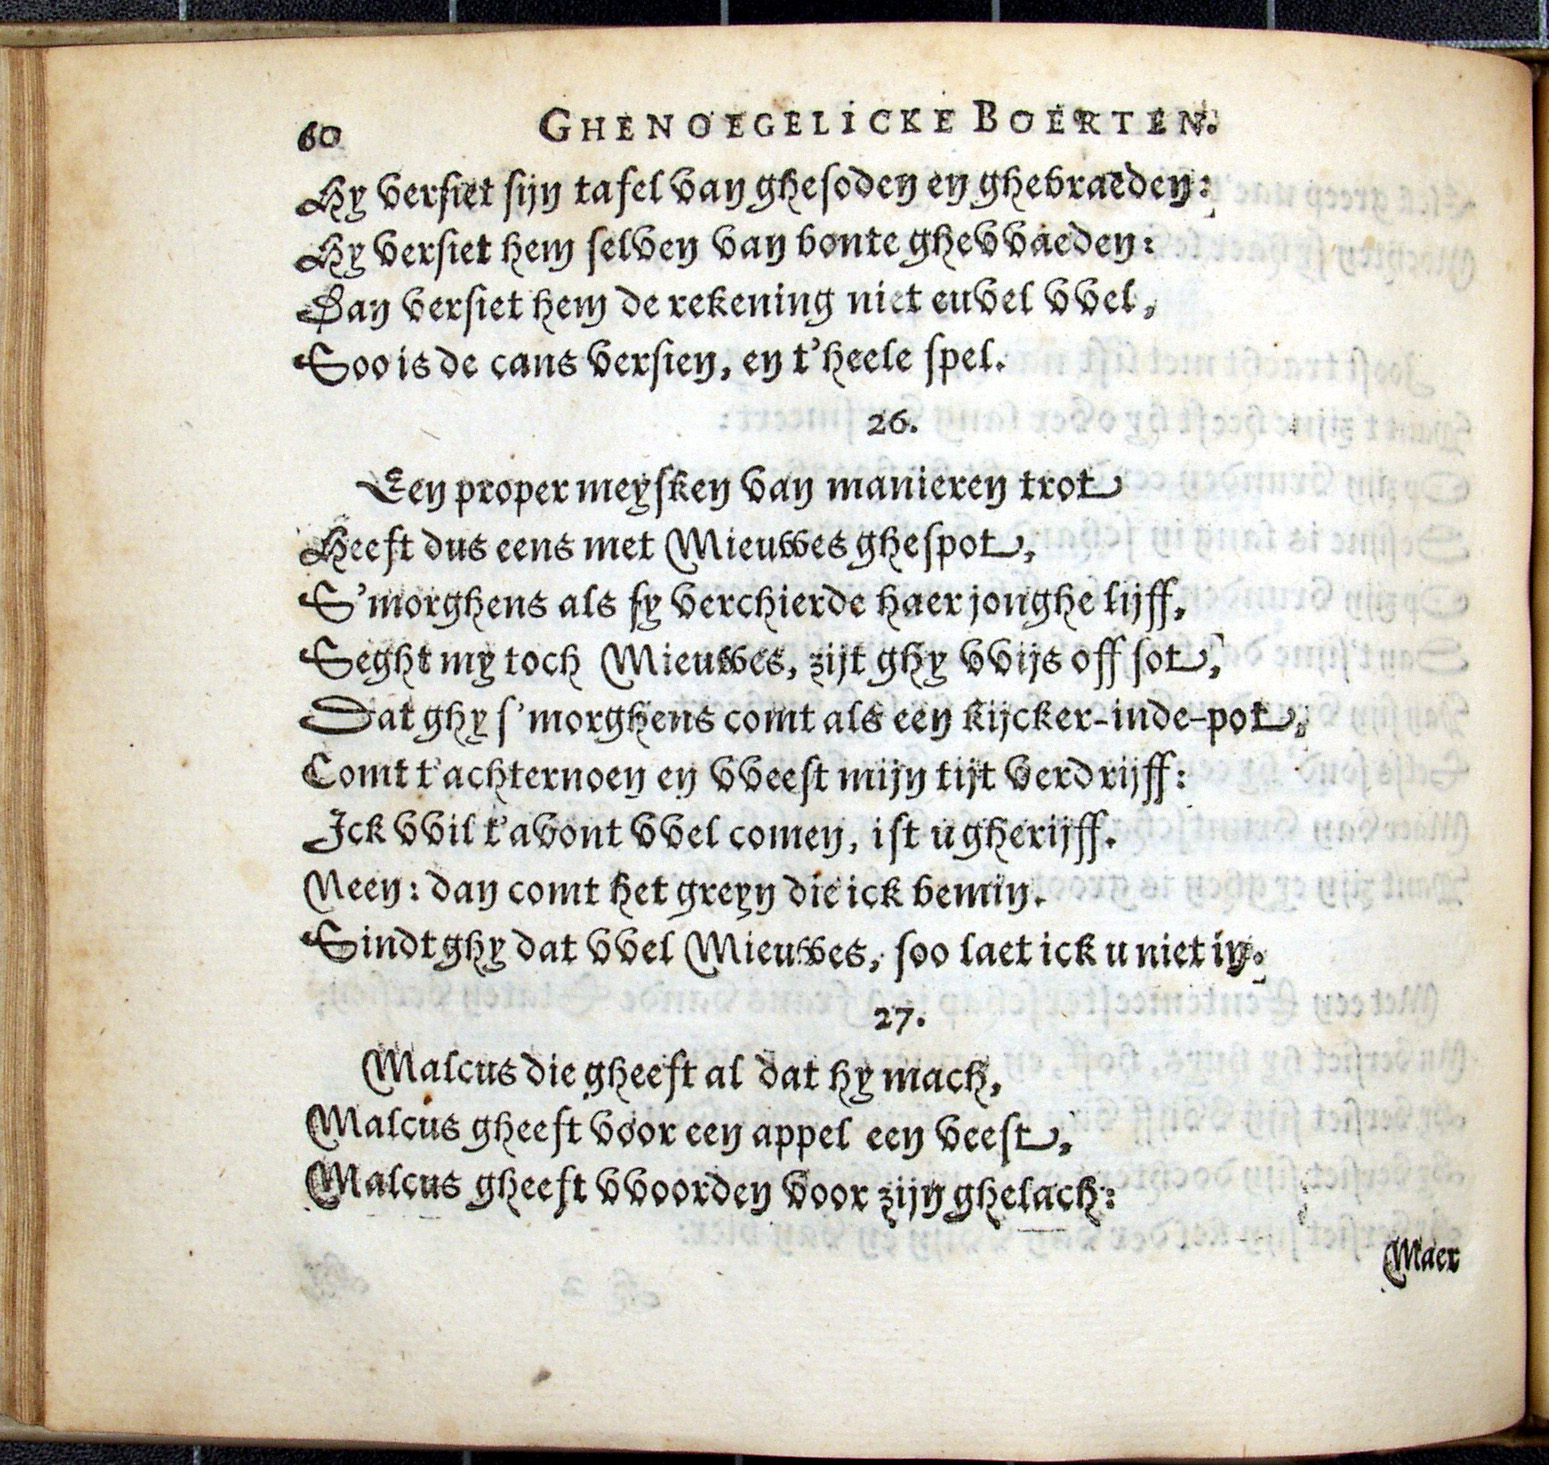 60 GHENOEGELICKE BOERTEN.
Hy versiet sijn tafel van ghesoden en ghebraeden:
Hy versiet hem selven van bonte ghevvaeden:
Dan versiet hem de rekening niet euvel vvel,
Soo is de cans versien, en t'heele spel.
26.
Een proper meysken van manieren trot
Heeft dus eens met Mieuwes ghespot,
S'morghens als sy verchierde haer jonghe lijff,
Seght my toch Mieuwes, zijt ghy vvijs off sot,
Dat ghy s'morghens comt als een kijcker-inde-pot,
Comt t'achternoen en vveest mijn tijt verdrijff:
Ick vvil t'avont vvel comen, ist u gherijff.
Neen: dan comt het greyn die ick bemin.
Sindt ghy dat vvel Mieuwes, soo laet ick u niet in.
27.
Malcus die gheeft al dat hy mach,
Malcus gheeft voor een appel een veest,
Malcus gheeft vvoorden voor zijn ghelach:
Maer